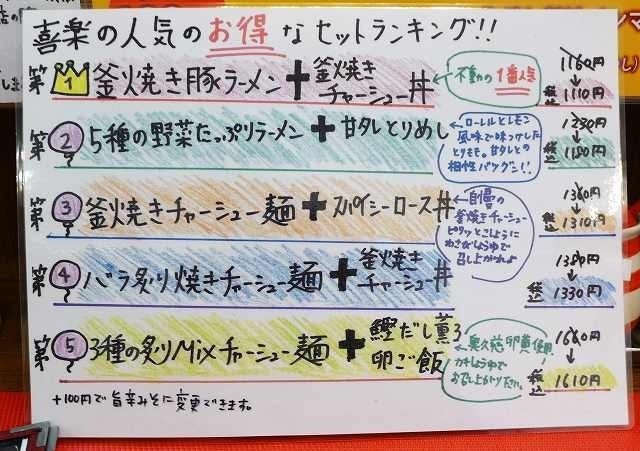 喜楽の人気のお得なセットランキング!!
第1 釜焼き豚ラーメン + 釜焼きチャーシュー丼
不動の1番人気
1160円
↓
税込 1110円
第2 5種の野菜たっぷりラーメン + 甘タレとりめし
ローレルとレモン
風味で味つけした
とりもも。甘タレとの
相性バツグン!!
1230円
↓
税込 1180円
第3 釜焼きチャーシュー麺 + スパイシーロース丼
自慢の
釜焼きチャーシュー
ピリッとこしょうに
わさびしょうゆで
召し上がれ♪
1360円
↓
税込 1310円
第4 バラ炙り焼きチャーシュー麺 + 釜焼きチャーシュー丼
1380円
↓
税込 1330円
第5 3種の炙りMixチャーシュー麺 + 鰹だし薫る卵ご飯
奥久慈卵黄使用
カキしょうゆで
お召し上がりください。
1660円
↓
税込 1610円
+100円で旨辛みそに変更できます。